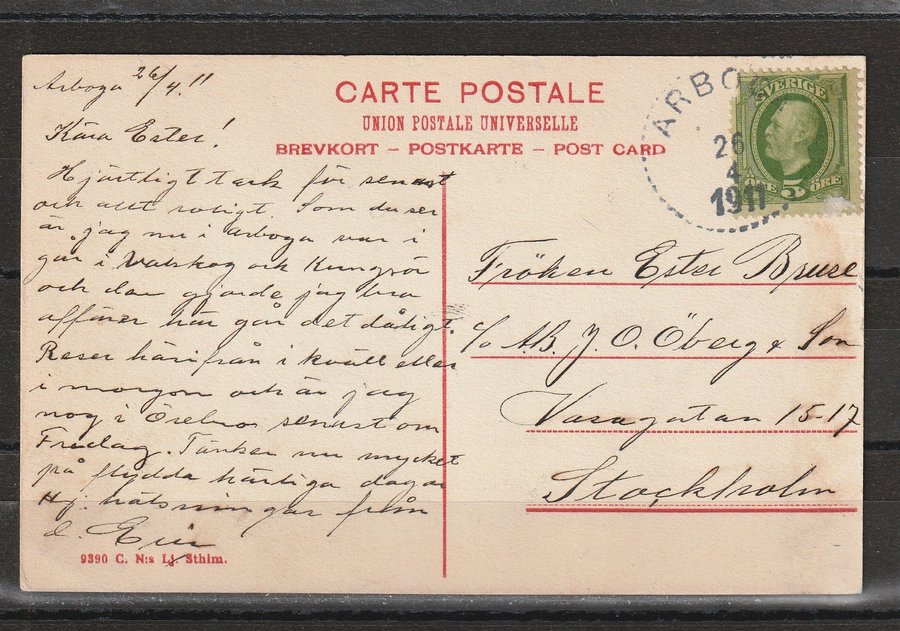 Arboga 26/4.11
Kära Ester!
Hjärtligt tack för senast
och allt roligt. Som du ser
är jag nu i Arboga var i
går i Valskog och Kungsör
och där gjorde jag bra
affärer här går det dåligt.
Reser härifrån i kväll eller
i morgon och är jag
nog i Örebro senast om
Fredag. Tänker nu mycket
på flydda härliga dagar
Hj. hälsningar från
d. 
9390 C. N:s Lj. Sthlm.
CARTE POSTALE
UNION POSTALE UNIVERSELLE
BREVKORT – POSTKARTE – POST CARD
ARBOGA
26
4
1911
SVERIGE
ÖRE 5 ÖRE
Fröken Ester Bruse
c/o A.B. J. O. Öberg & Son
Vasagatan 15-17
Stockholm